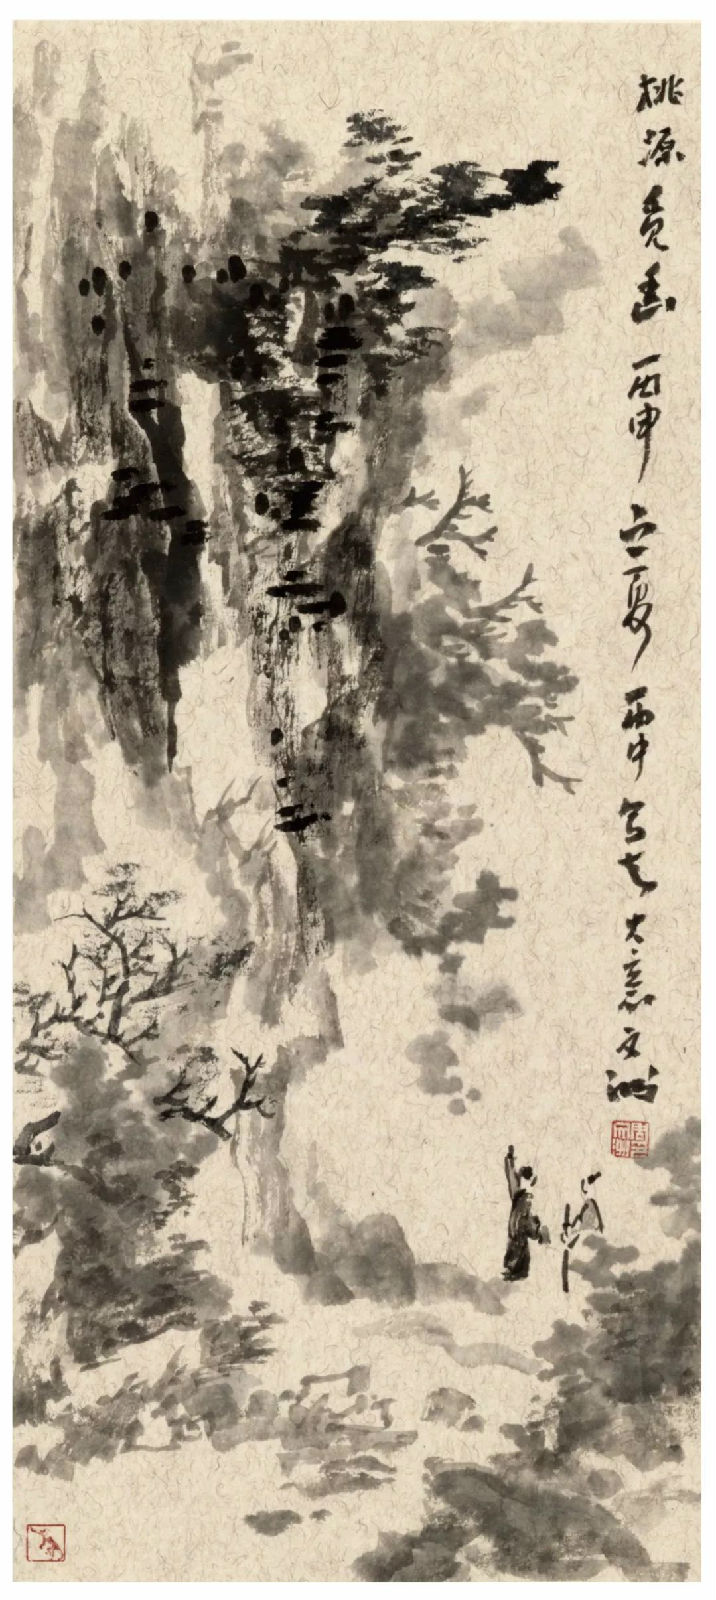 桃源觅幽丙申立夏雨中写其大意文洲